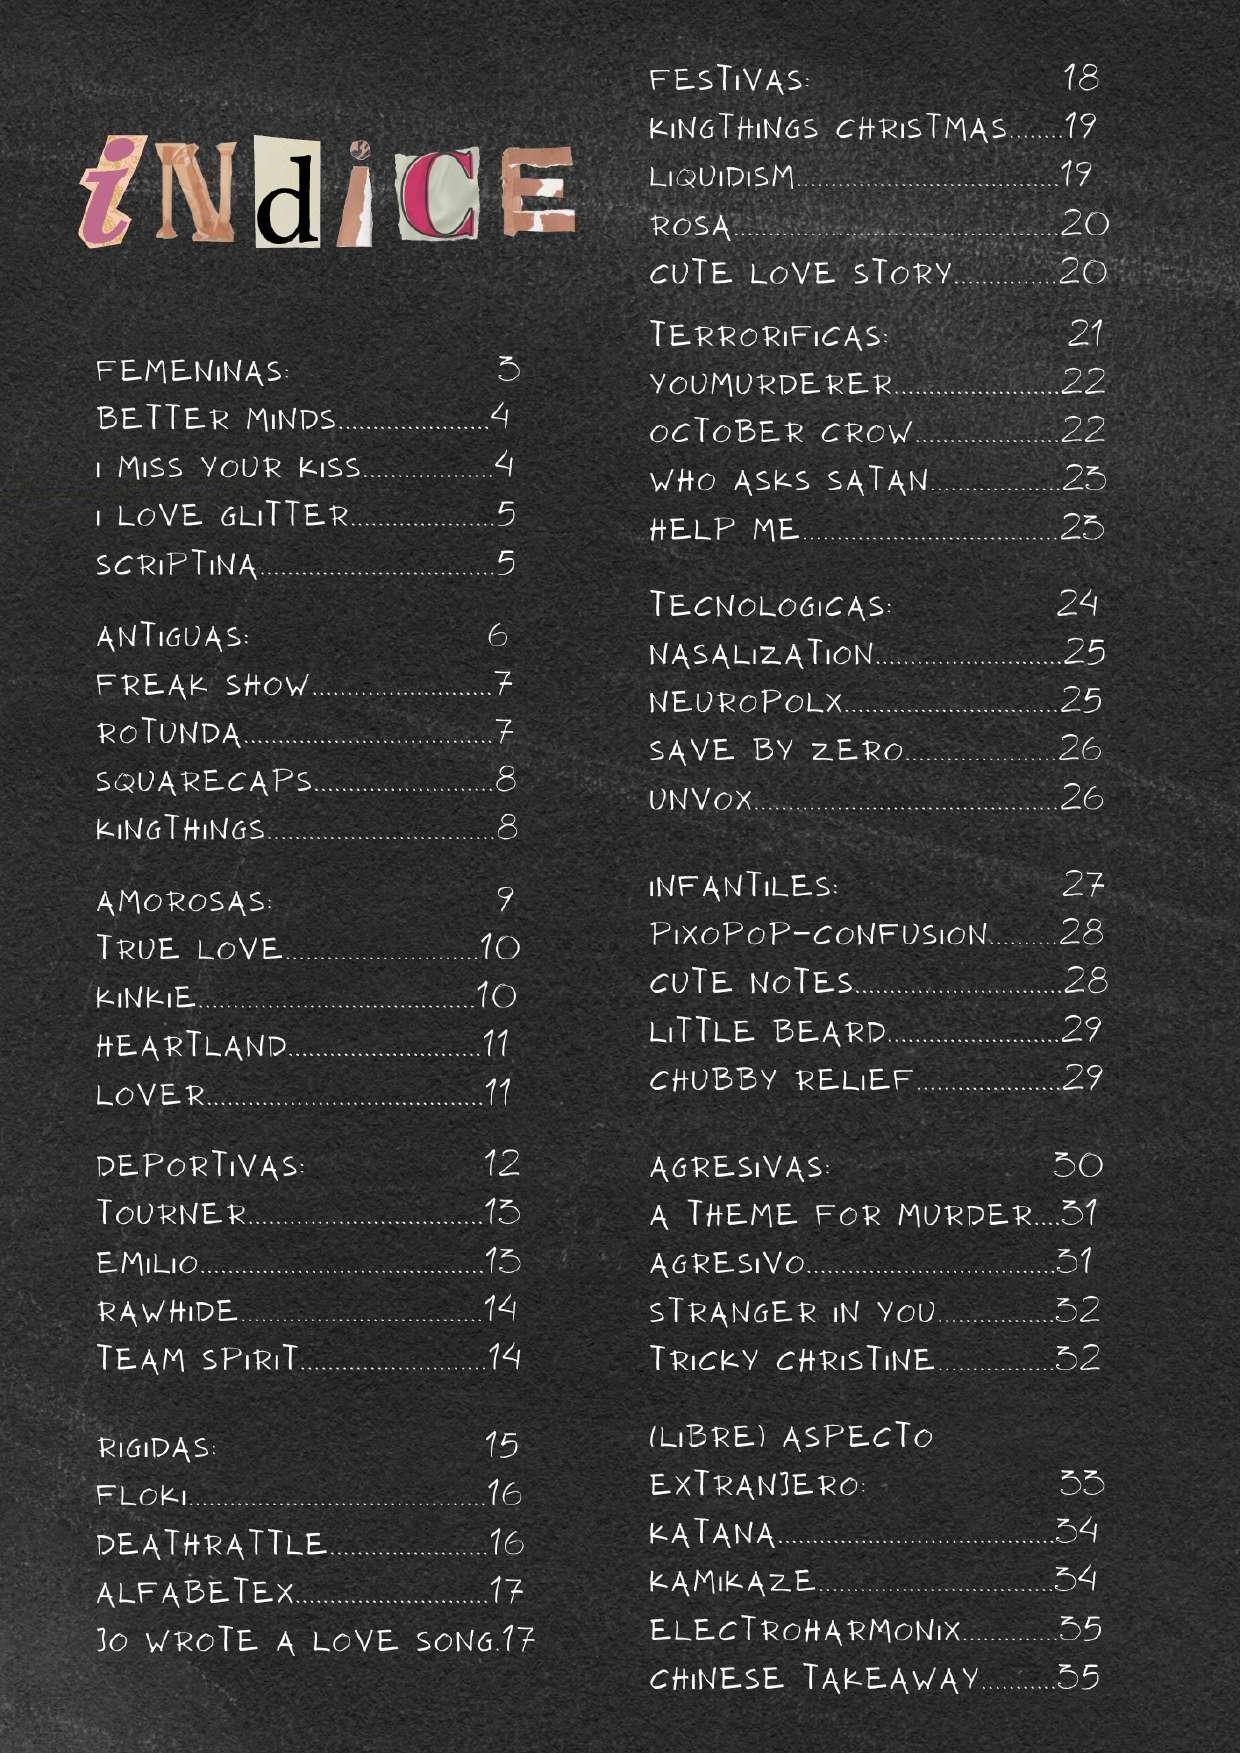 iNdiCE
FEMENINAS: 3
BETTER MINDS......................4
I MISS YOUR KISS...................4
I LOVE GLITTER.....................5
SCRIPTINA..................................5
ANTIGUAS: 6
FREAK SHOW..........................7
ROTUNDA....................................7
SQUARECAPS..........................8
KINGTHINGS.................................8
AMOROSAS: 9
TRUE LOVE............................10
KINKIE........................................10
HEARTLAND............................11
LOVER........................................11
DEPORTIVAS: 12
TOURNER..................................13
EMILIO.........................................13
RAWHIDE...................................14
TEAM SPIRIT...........................14
RIGIDAS: 15
FLOKI...........................................16
DEATHRATTLE.......................16
ALFABETEX............................17
JO WROTE A LOVE SONG.17
FESTIVAS: 18
KINGTHINGS CHRISTMAS........19
LIQUIDISM......................................19
ROSA...............................................20
CUTE LOVE STORY...............20
TERRORIFICAS: 21
YOUMURDERER........................22
OCTOBER CROW.....................22
WHO ASKS SATAN...................23
HELP ME.....................................23
TECNOLOGICAS: 24
NASALIZATION...........................25
NEUROPOLX...............................25
SAVE BY ZERO......................26
UNVOX............................................26
INFANTILES: 27
PIXOPOP-CONFUSION..........28
CUTE NOTES..............................28
LITTLE BEARD.........................29
CHUBBY RELIEF.....................29
AGRESIVAS: 30
A THEME FOR MURDER....31
AGRESIVO....................................31
STRANGER IN YOU.................32
TRICKY CHRISTINE.................32
(LIBRE) ASPECTO
EXTRANJERO: 33
KATANA........................................34
KAMIKAZE..................................34
ELECTROHARMONIX..............35
CHINESE TAKEAWAY...........35